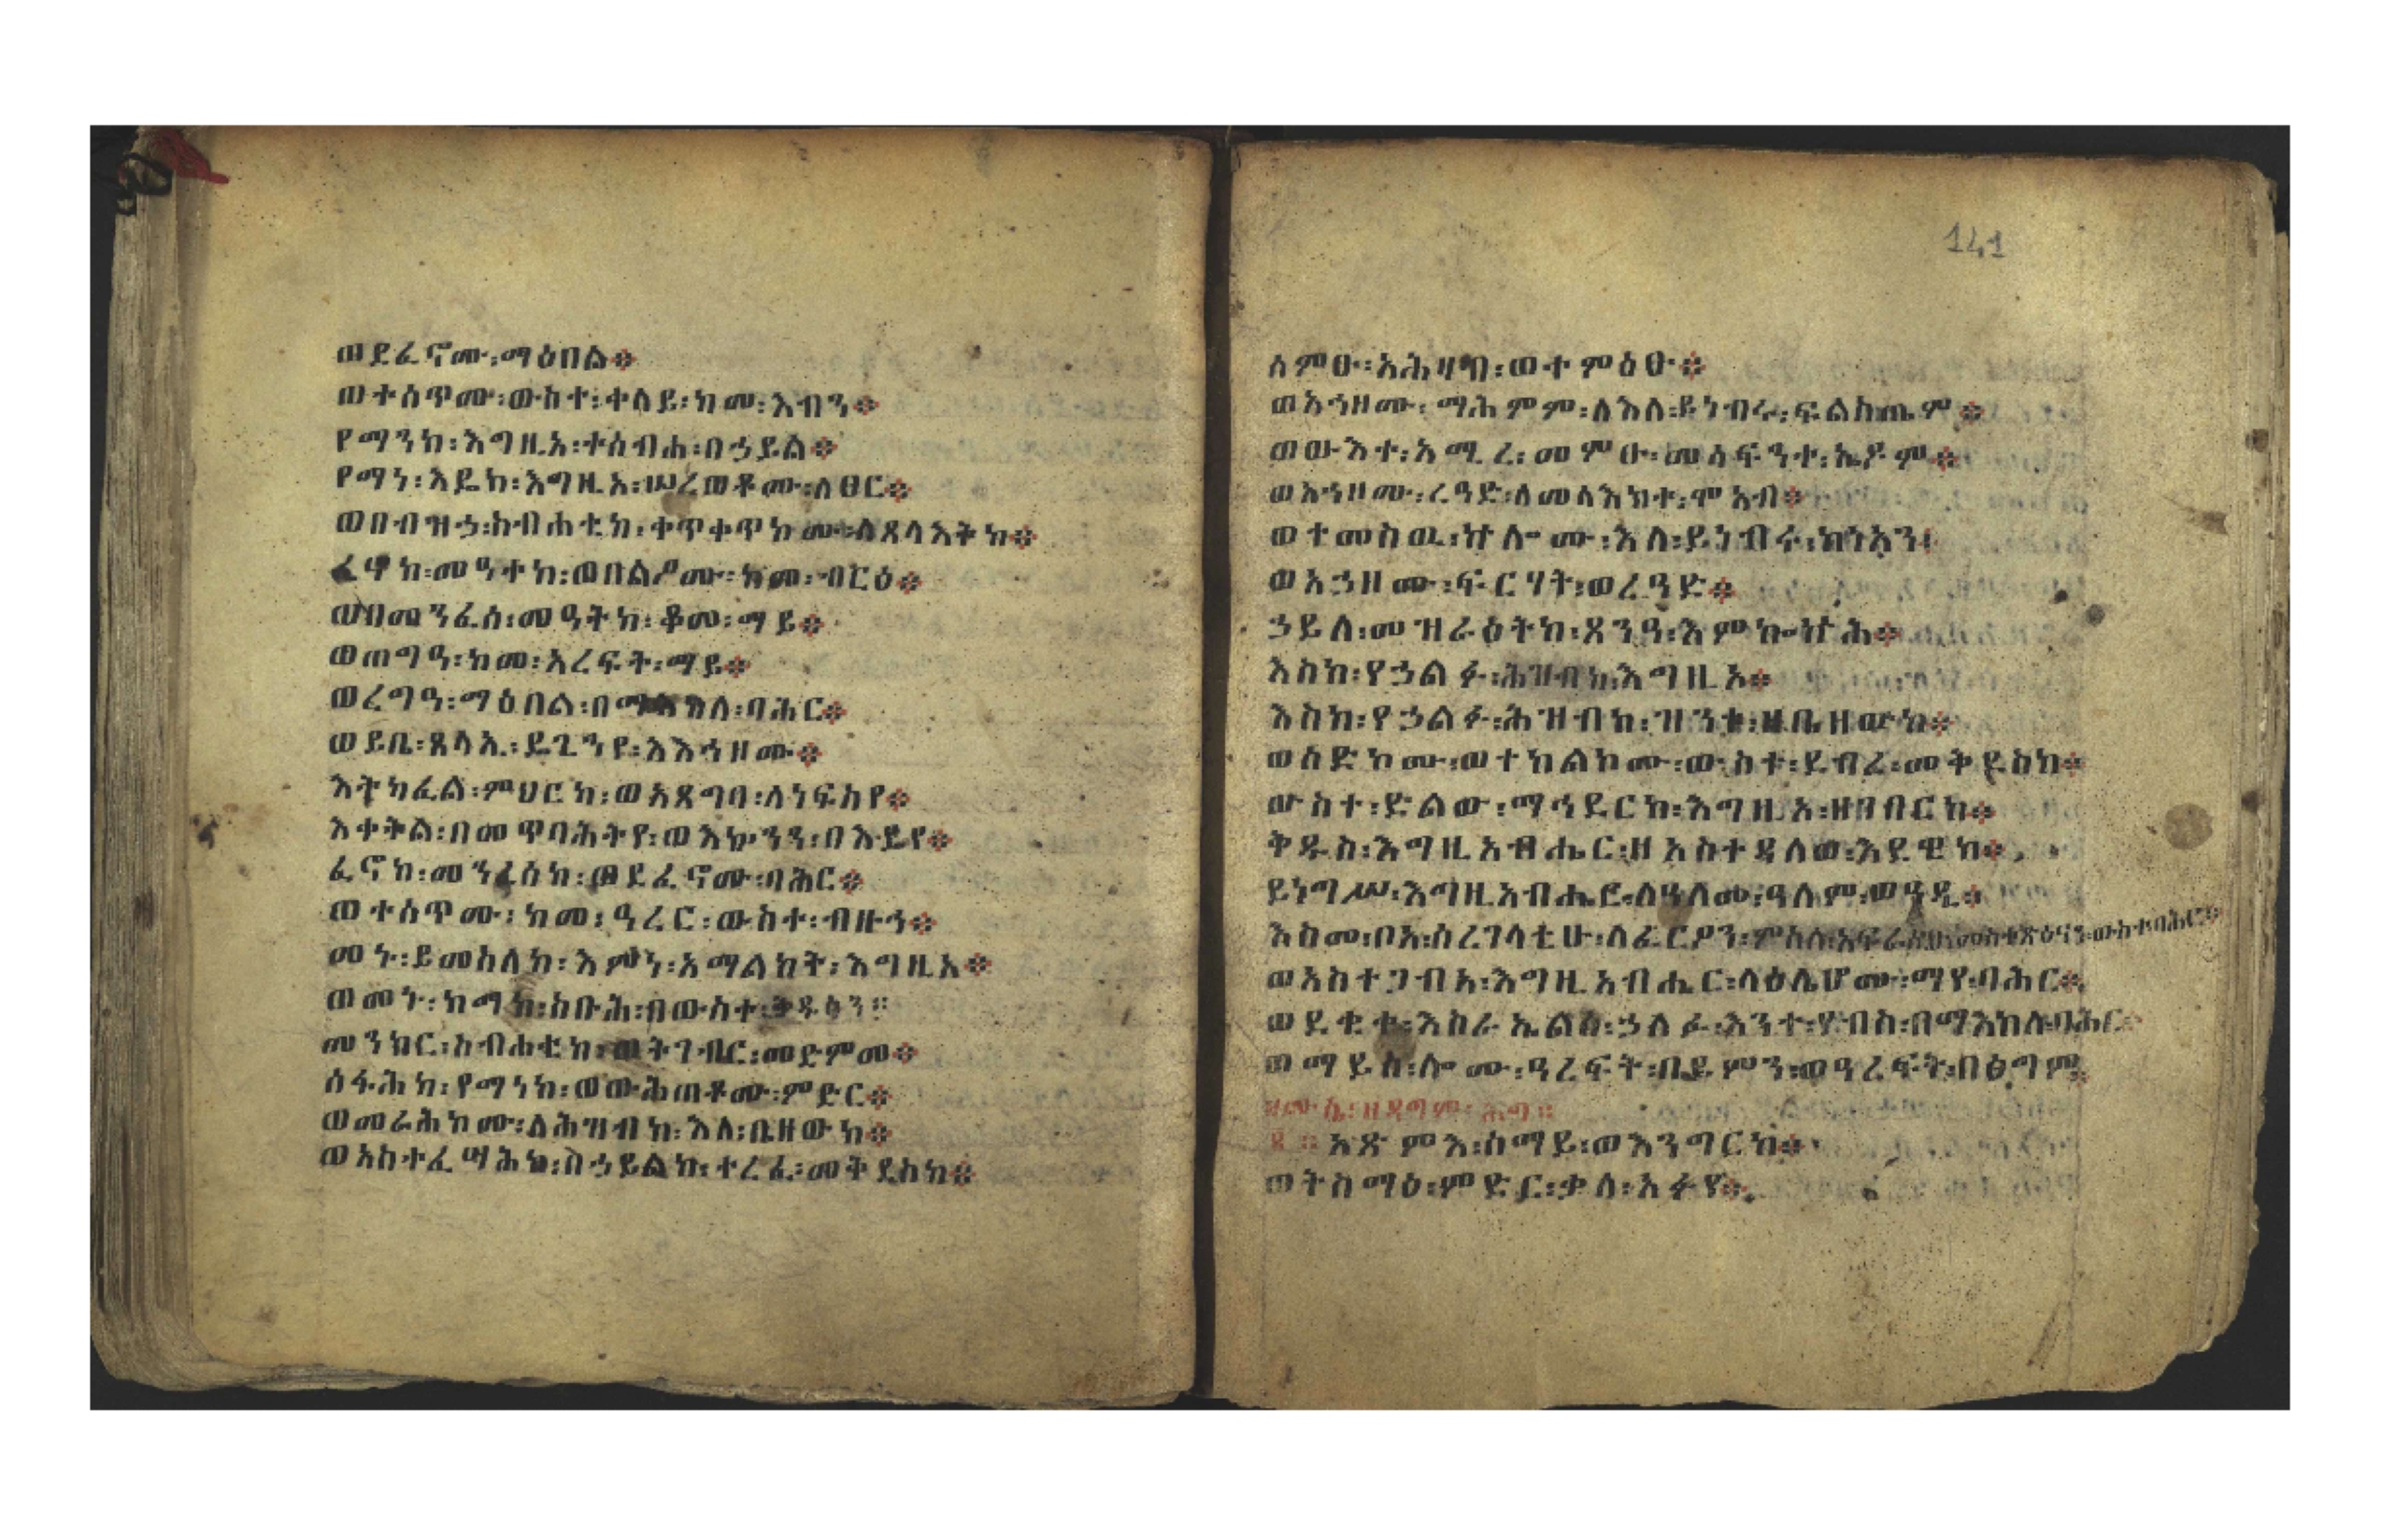 ወደፈኖሙ፡ማዕበል፨
ወተሰጥሙ፡ውስተ፡ቀላይ፡ከመ፡እብን፨
የማንከ፡እግዚአ፡ተሰብሐ፡በኃይል፨
የማነ፡እዴከ፡እግዚአ፡ሠረወቶሙ፡ለፀር፨
ወበብዝኃ፡ስብሐቲከ፡ቀጥቀጥኮሙ፡ለጸላእትከ፨
ፈኖከ፡መዓተከ፡ወበልዖሙ፡ከመ፡ብርዕ፨
ወበመንፈሰ፡መዓትከ፡ቆመ፡ማይ፨
ወጠግዓ፡ከመ፡አረፍት፡ማይ፨
ወረግዓ፡ማዕበል፡በማእከለ፡ባሕር፨
ወይቤ፡ጸላኢ፡ዴጊንየ፡እእኅዘሙ፨
እትካፈል፡ምህርካ፡ወአጸግባ፡ለነፍስየ፨
እቀትል፡በመጥባሕትየ፡ወእኳንን፡በእዴየ፨
ፈኖከ፡መንፈስከ፡ወደፈኖሙ፡ባሕር፨
ወተሰጥሙ፡ከመ፡ዓረር፡ውስተ፡ብዙን፨
መኑ፡ይመስለከ፡እምነ፡አማልክት፡እግዚአ፨
ወመኑ፡ከማከ፡ስቡሕ፡በውስተ፡ቅዱሳን፨
መንክር፡ስብሐቲከ፡ወትገብር፡መድምመ፨
ሰፋሕከ፡የማነከ፡ወውሕጠቶሙ፡ምድር፨
ወመራሕኮሙ፡ለሕዝብከ፡እለ፡ቤዘውከ፨
ወአስተፈሣሕከ፡በኃይልከ፡ተረፈ፡መቅደስከ፨
141
ሰምዑ፡አሕዛብ፡ወተምዕዑ፨
ወአኅዘሙ፡ማሕምም፡ለእለ፡ይነብሩ፡ፍልስጤም፨
ወውእተ፡አሚረ፡መምዑ፡መሳፍንተ፡ኤዶም፨
ወአኅዘሙ፡ረዓድ፡ለመላእክተ፡ሞአብ፨
ወተመስዉ፡ኵሎሙ፡እለ፡ይነብሩ፡ከነአን፤
ወአኃዘሙ፡ፍርሃት፡ወረዓድ፨
ኃይለ፡መዝራዕትከ፡ጸንዓ፡እምኰኵሕ፨
እስከ፡የኃልፉ፡ሕዝብከ፡እግዚአ፨
እስከ፡የኃልፉ፡ሕዝብከ፡ዝንቱ፡ዘቤዘውከ፨
ወስድኮሙ፡ወተክልኮሙ፡ውስተ፡ደብረ፡መቅደስከ፨
ውስተ፡ድልው፡ማኅደርከ፡እግዚአ፡ዘገበርከ፨
ቅዱስ፡እግዚአብሔር፡ዘአስተዳለወ፡እደዊከ፨
ይነግሥ፡እግዚአብሔር፡ለዓለመ፡ዓለም፡ወዓዲ፨
እስመ፡ቦአ፡ሰረገላቲሁ፡ለፈርዖን፡ምስለ፡አፍራሲሁ፡መስተጽዕናን፡ውስተ፡ባሕር፨
ወአስተጋብአ፡እግዚአብሔር፡ላዕሌሆሙ፡ማየ፡ባሕር፨
ወደቂቀ፡እስራኤልሰ፡ኃለፉ፡እንተ፡የብስ፡በማእከለ፡ባሕር፨
ወማይሰ፡ሎሙ፡ዓረፍት፡በይምን፡ወዓረፍት፡በፅግም፨
ዘሙሴ፡ዘዳግም፡ሕግ፨
፪፡፡አጽምእ፡ሰማይ፡ወእንግርከ፨
ወትስማዕ፡ምድር፡ቃለ፡አፉየ፨